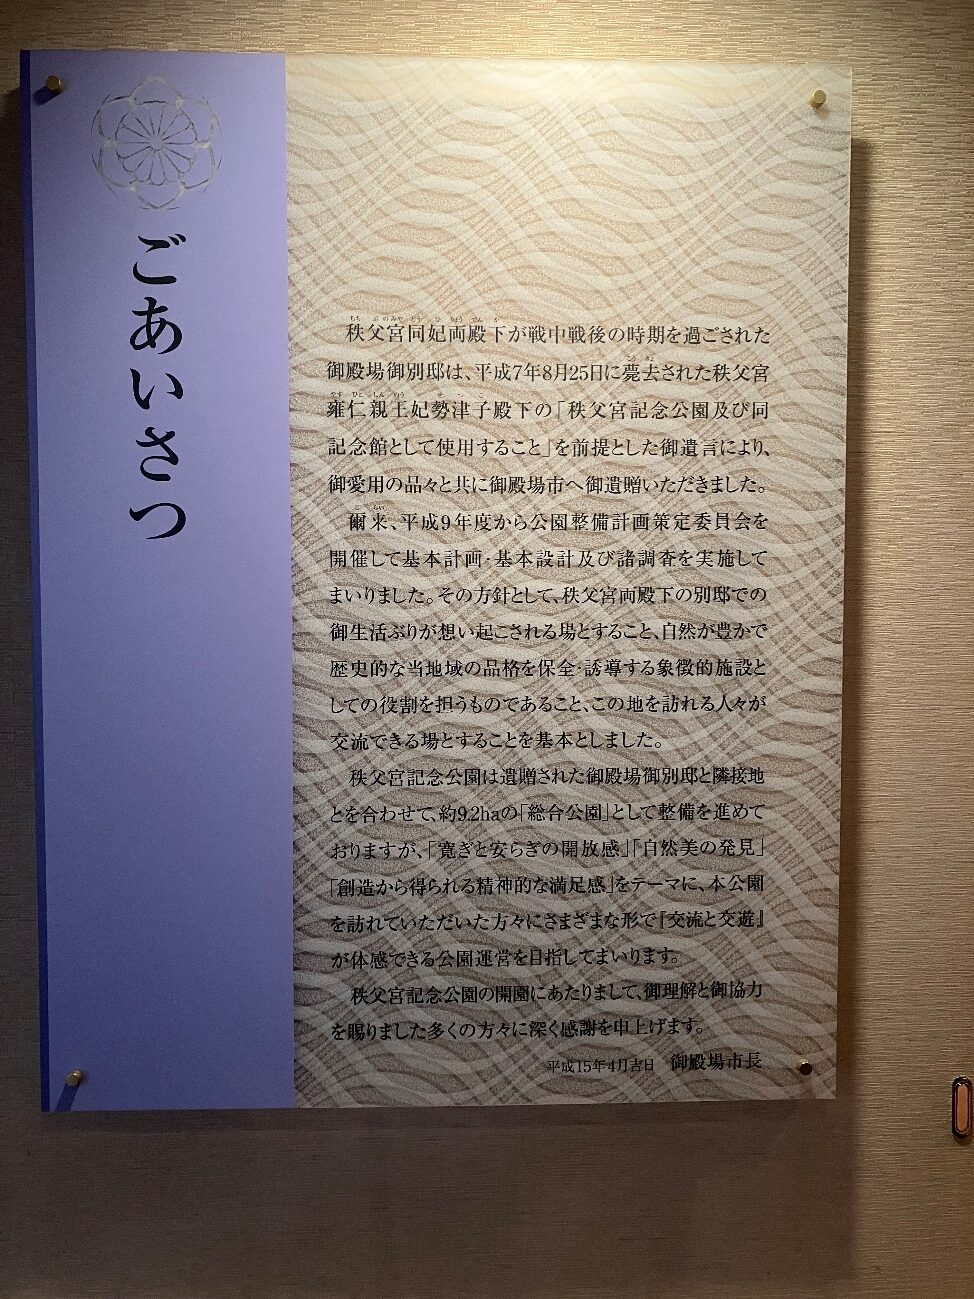 ごあいさつ
秩父宮同妃両殿下が戦中戦後の時期を過ごされた
御殿場御別邸は、平成7年8月25日に薨去された秩父宮
雍仁親王妃勢津子殿下の「秩父宮記念公園及び同
記念館として使用すること」を前提とした御遺言により、
御愛用の品々と共に御殿場市へ御遺贈いただきました。
爾来、平成9年度から公園整備計画策定委員会を
開催して基本計画・基本設計及び諸調査を実施して
まいりました。その方針として、秩父宮両殿下の別邸での
御生活ぶりが想い起こされる場とすること、自然が豊かで
歴史的な当地域の品格を保全・誘導する象徴的施設と
しての役割を担うものであること、この地を訪れる人々が
交流できる場とすることを基本としました。
秩父宮記念公園は遺贈された御殿場御別邸と隣接地
とを合わせて、約9.2haの「総合公園」として整備を進めて
おりますが、「寛ぎと安らぎの開放感」「自然美の発見」
「創造から得られる精神的な満足感」をテーマに、本公園
を訪れていただいた方々にさまざまな形で『交流と交遊』
が体感できる公園運営を目指してまいります。
秩父宮記念公園の開園にあたりまして、御理解と御協力
を賜りました多くの方々に深く感謝を申上げます。
平成15年4月吉日 御殿場市長